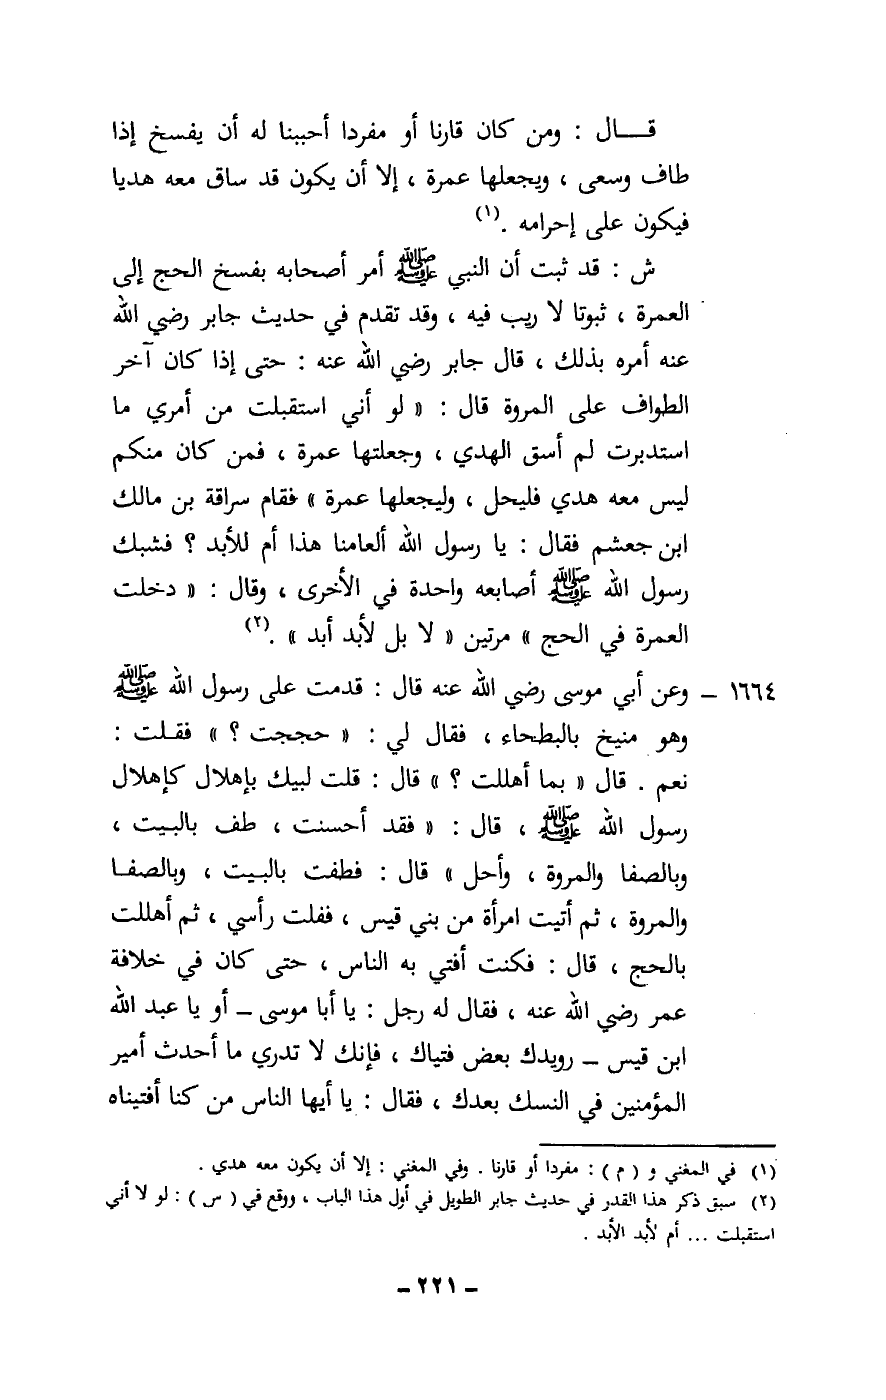 قـــال : ومن كان قارنا أو مفردا أحببنا له أن يفسخ إذا
طاف وسعى ، ويجعلها عمرة ، إلا أن يكون قد ساق معه هديا
فيكون على إحرامه .(١)
ش : قد ثبت أن النبي ﷺ أمر أصحابه بفسخ الحج إلى
العمرة ، ثبوتا لا ريب فيه ، وقد تقدم في حديث جابر رضي الله
عنه أمره بذلك ، قال جابر رضي الله عنه : حتى إذا كان آخر
الطواف على المروة قال : « لو أني استقبلت من أمري ما
استدبرت لم أسق الهدي ، وجعلتها عمرة ، فمن كان منكم
ليس معه هدي فليحل ، وليجعلها عمرة » فقام سراقة بن مالك
ابن جعشم فقال : يا رسول الله ألعامنا هذا أم للأبد ؟ فشبك
رسول الله ﷺ أصابعه واحدة في الأخرى ، وقال : « دخلت
العمرة في الحج » مرتين « لا بل لأبد أبد » .(٢)
١٦٦٤ – وعن أبي موسى رضي الله عنه قال : قدمت على رسول الله ﷺ
وهو منيخ بالبطحاء ، فقال لي : « حججت ؟ » فقلت :
نعم . قال « بما أهللت ؟ » قال : قلت لبيك بإهلال كإهلال
رسول الله ﷺ ، قال : « فقد أحسنت ، طف بالبيت ،
وبالصفا والمروة ، وأحل » قال : فطفت بالبيت ، وبالصفا
والمروة ، ثم أتيت امرأة من بني قيس ، ففلت رأسي ، ثم أهللت
بالحج ، قال : فكنت أفتي به الناس ، حتى كان في خلافة
عمر رضي الله عنه ، فقال له رجل : يا أبا موسى – أو يا عبد الله
ابن قيس – رويدك بعض فتياك ، فإنك لا تدري ما أحدث أمير
المؤمنين في النسك بعدك ، فقال : يا أيها الناس من كنا أفتيناه
(١) في المغني و ( م ) : مفردا أو قارنا . وفي المغني : إلا أن يكون معه هدي .
(٢) سبق ذكر هذا القدر في حديث جابر الطويل في أول هذا الباب ، ووقع في ( س ) : لو لا أني
استقبلت ... أم لأبد الأبد .
– ٢٢١ –